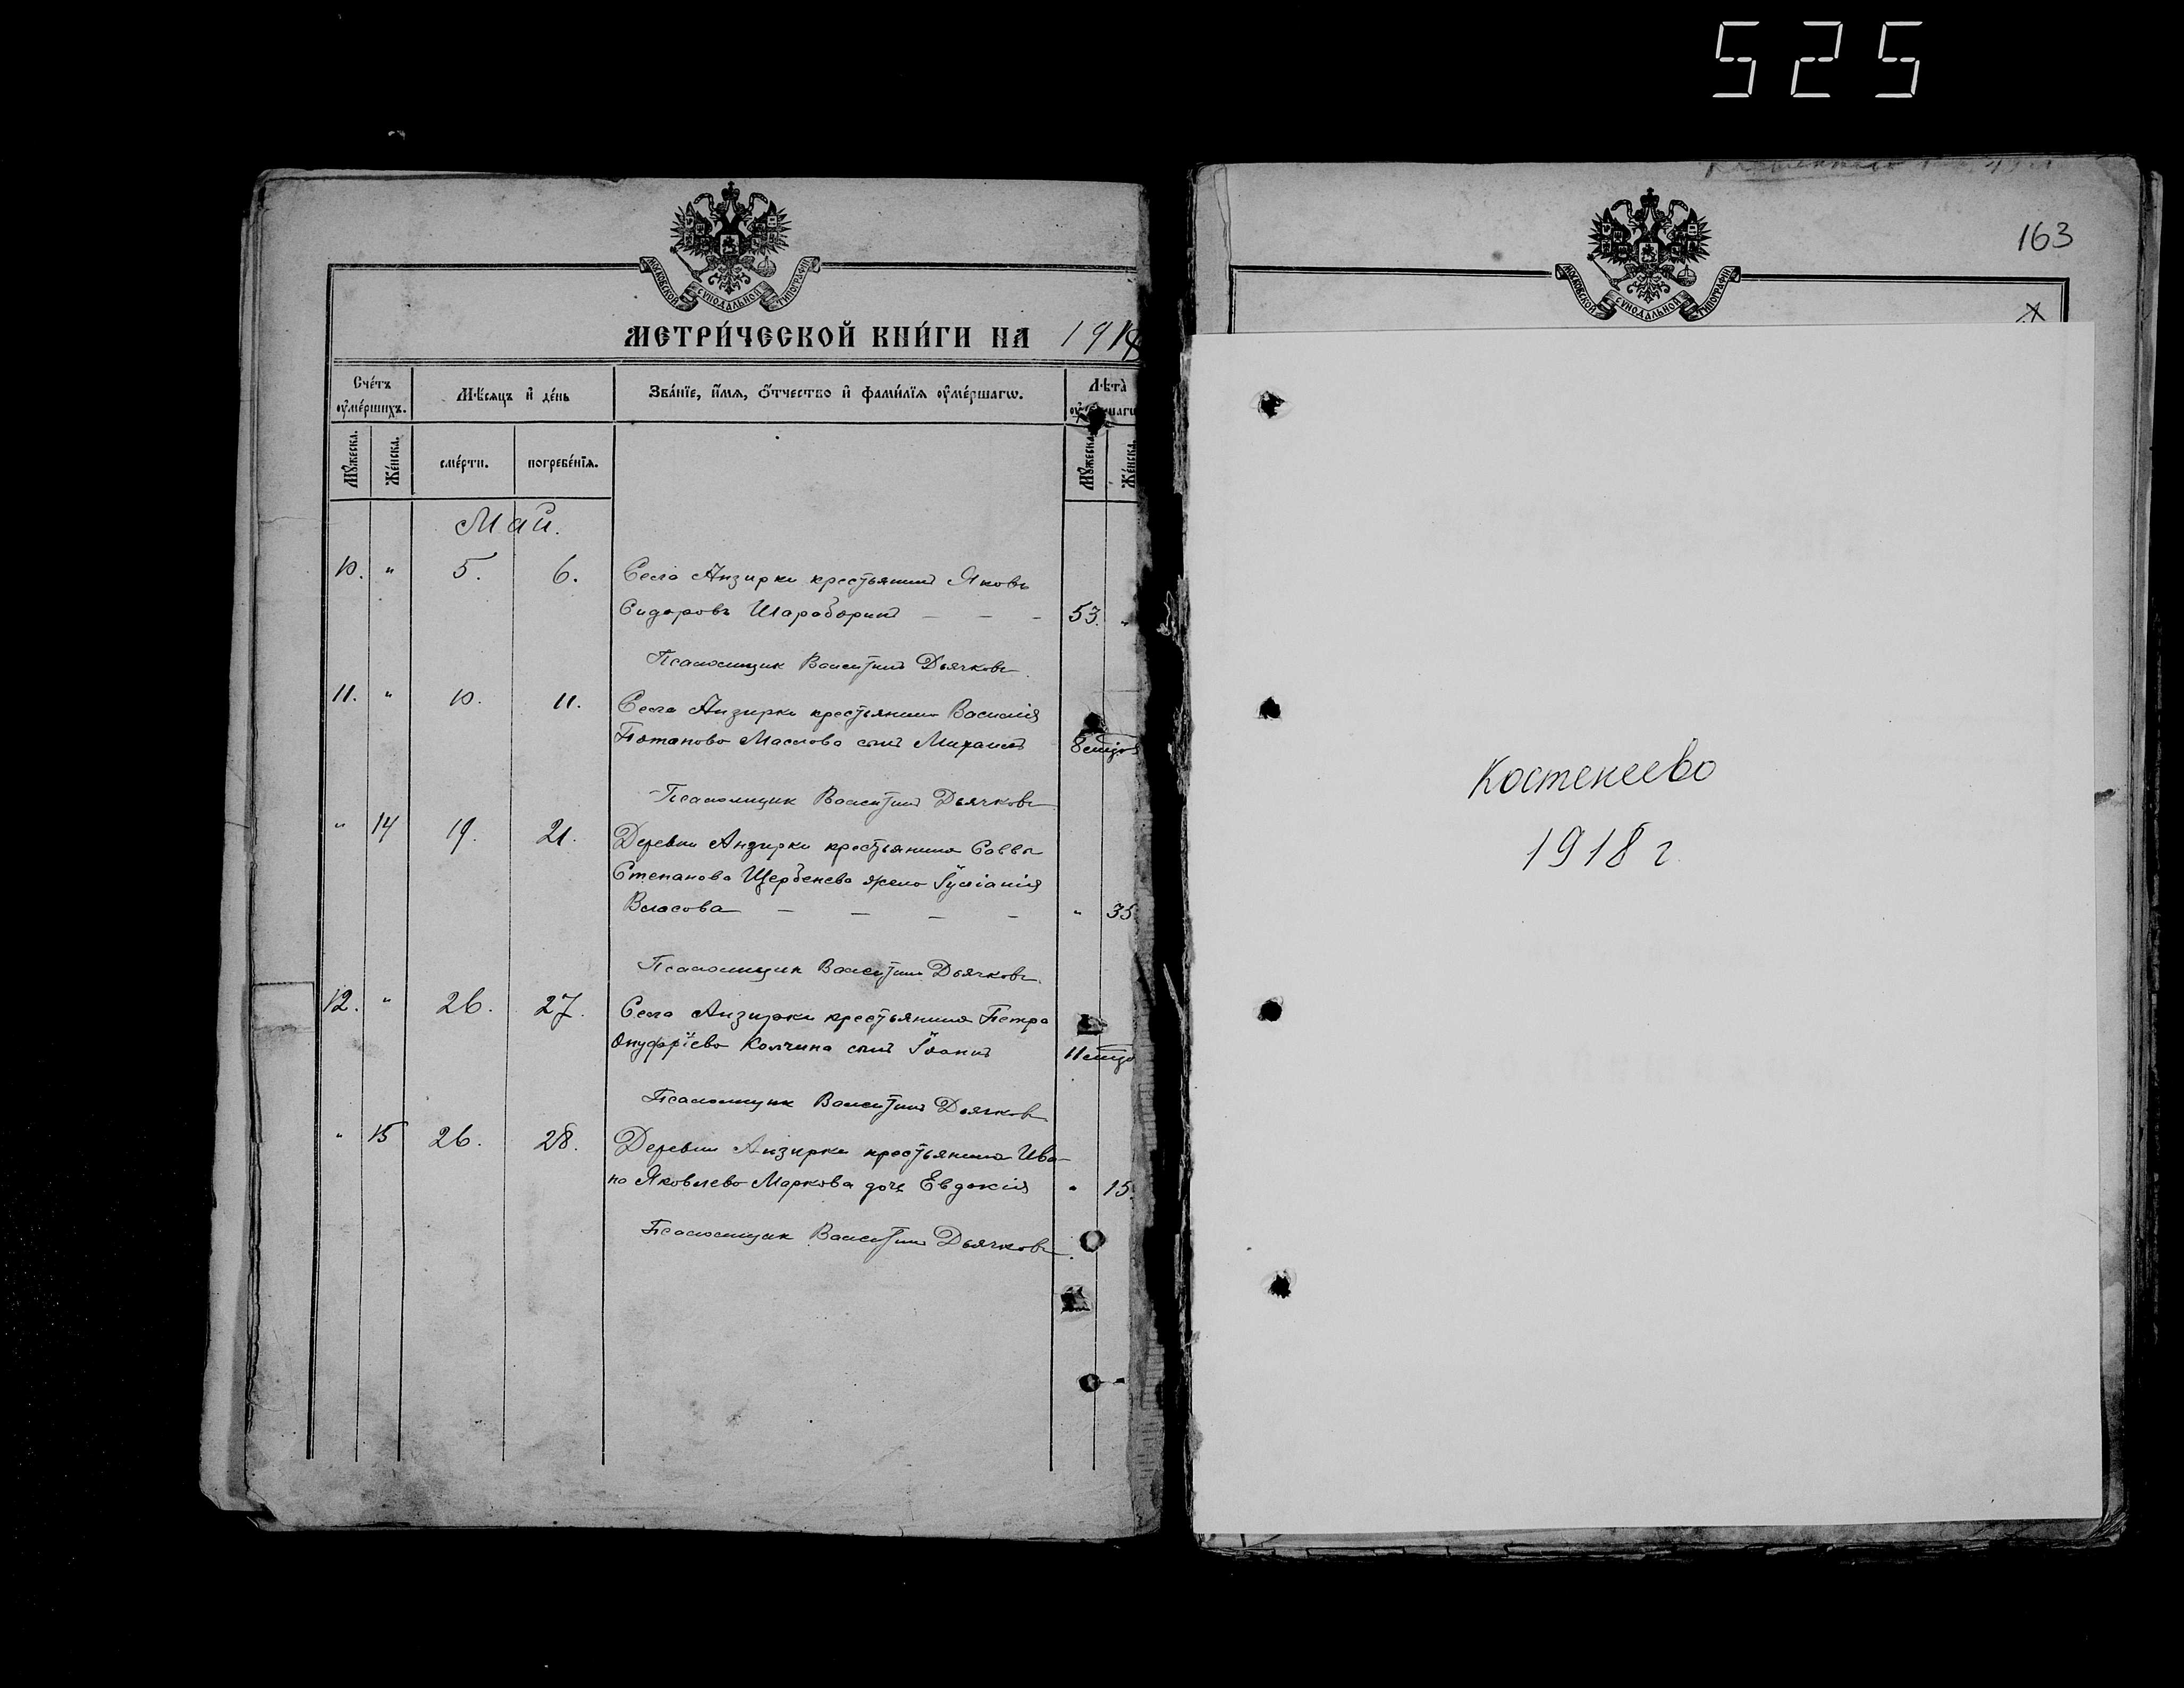 525
МОСКОВСКОЙ СѴНОДАЛЬНОЙ ТИПОГРАФІИ
МЕТРИ́ЧЕСКОЙ КНИ́ГИ НА 191
Сче́тъ оу҆ме́ршихъ.
Мѣ́сяцъ и҆ де́нь
Зва́нїе, и҆́мя, ѻ҆́тчество и҆ фами́лїя оу҆ме́ршагѡ.
Лѣта̀
Мꙋ́жеска.
Же́нска.
сме́рти.
погребе́нїя.
Мꙋ́жеска
Же́нска.
Май.
10. " 5. 6. Села Анзирки крестьянинъ Яковъ
Сидоровъ Шараборинъ — — — 53. "
Псаломщик Валентинъ Дьячковъ.
11. " 10. 11. Села Анзирки крестьянина Василія
Потапова Маслова сынъ Михаилъ 8
Псаломщик Валентинъ Дьячковъ
" 14 19. 21. Деревни Анзирки крестьянина Саввы
Степанова Щербенева жена Іуліанія
Власова — — — — " 35
Псаломщик Валентинъ Дьячковъ.
12. " 26. 27. Села Анзирки крестьянина Петра
Онуфріева Колчина сынъ Іоаннъ 11
Псаломщик Валентинъ Дьячковъ
" 15 26. 28. Деревни Анзирки крестьянина Ива-
на Яковлева Маркова дочь Евдокія " 15.
Псаломщик Валентинъ Дьячковъ.
163
МОСКОВСКОЙ СѴНОДАЛЬНОЙ ТИПОГРАФІИ
Костенеево
1918 г